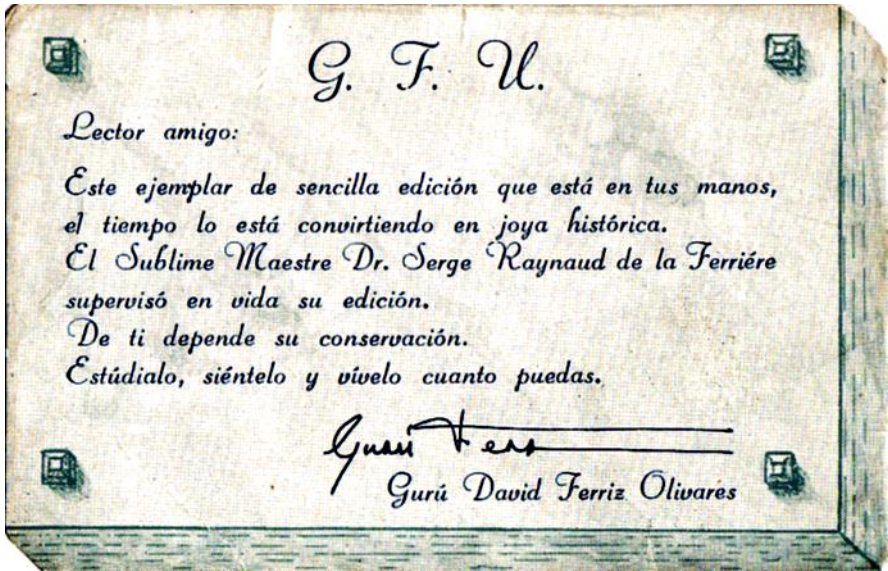 G. F. U.
Lector amigo:
Este ejemplar de sencilla edición que está en tus manos,
el tiempo lo está convirtiendo en joya histórica.
El Sublime Maestre Dr. Serge Raynaud de la Ferriére
supervisó en vida su edición.
De ti depende su conservación.
Estúdialo, siéntelo y vívelo cuanto puedas.
Gurú David Ferriz Olivares